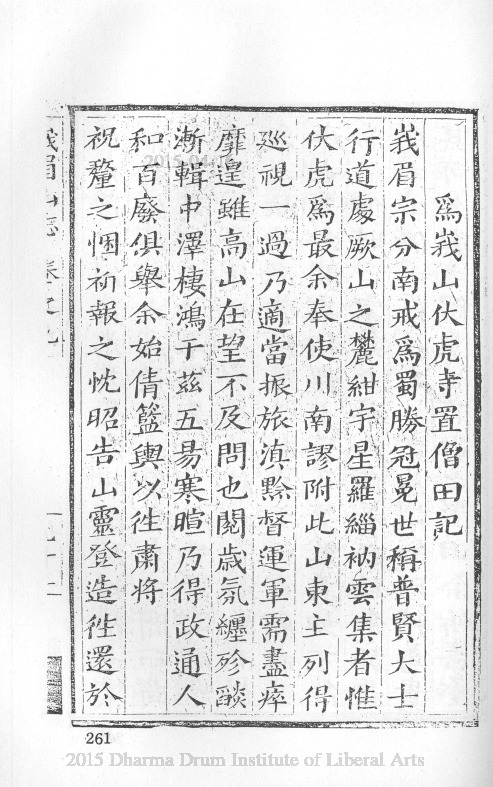 為峩山伏虎寺置僧田記
峩眉宗分南戒為蜀勝冠冕世稱普賢大士
行道處厥山之麓紺宇星羅緇衲雲集者惟
伏虎為最余奉使川南謬附此山東主列得
廵視一過乃適當振旅滇黔督運軍需盡瘁
靡遑雖高山在望不及問也閱歲氛纏殄燄
漸輯中澤棲鴻于茲五昜寒暄乃得政通人
和百廢俱舉余始倩籃輿以徃肅將
祝釐之悃祈報之忱昭告山靈登造徃還於
峩眉山志 卷之九
261
2015 Dharma Drum Institute of Liberal Arts